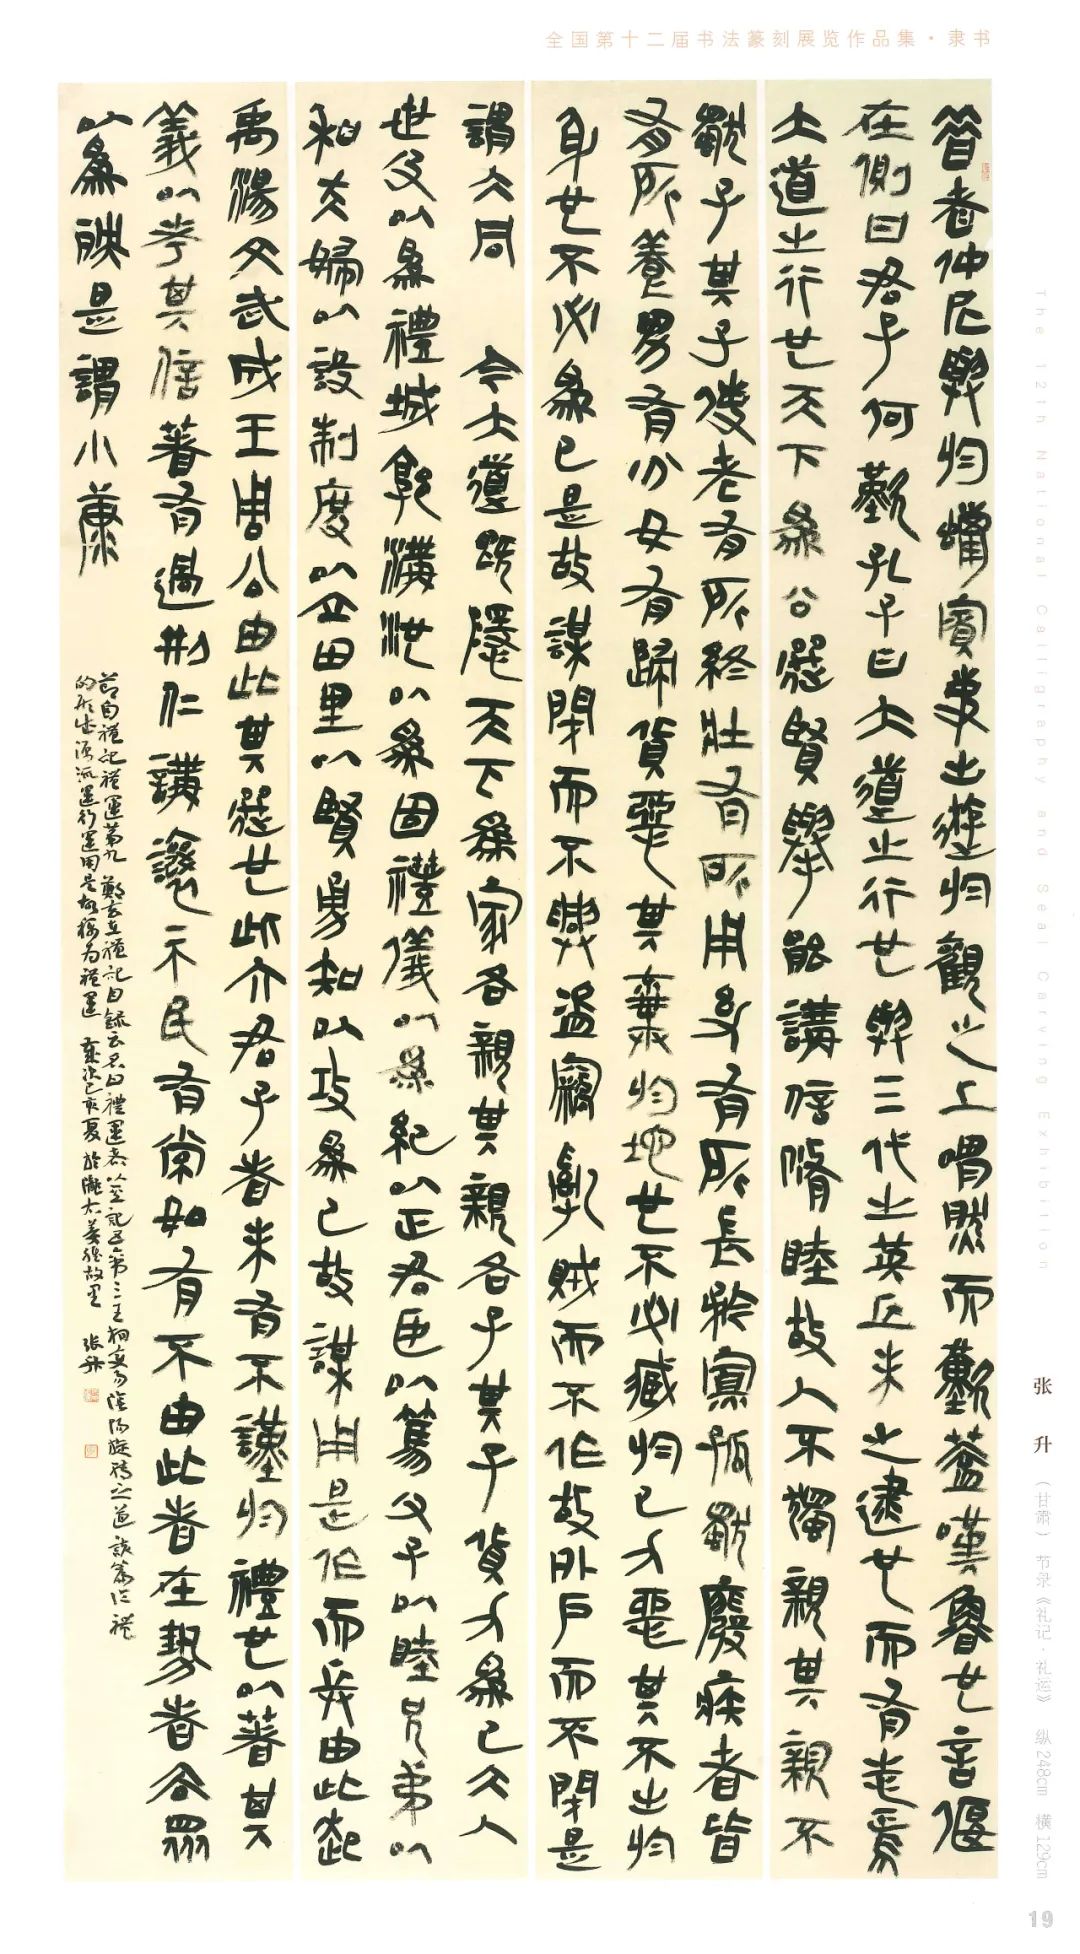 全国第十二届书法篆刻展览作品集·隶书
昔者仲尼與於蠟賓事出遊於觀之上喟然而歎蓋嘆魯也言偃
在側曰君子何歎孔子曰大道之行也與三代之英丘未之逮也而有志焉
大道之行也天下為公選賢舉能講信脩睦故人不獨親其親不
獨子其子使老有所終壯有所用幼有所長矜寡孤獨廢疾者皆
有所養男有分女有歸貨惡其棄於地也不必藏於己力惡其不出於
身也不必為己是故謀閉而不興盜竊亂賊而不作故外戶而不閉是
謂大同 今大道既隱天下為家各親其親各子其子貨力為己大人
世及以為禮城郭溝池以為固禮儀以為紀以正君臣以篤父子以睦兄弟以
和夫婦以設制度以立田里以賢勇知以功為己故謀用是作而兵由此起
禹湯文武成王周公由此其選也此六君子者未有不謹於禮也以著其
義以考其信著有過刑仁講讓示民有常如有不由此者在勢者去眾
以為殃是謂小康
節自禮記禮運第九 鄭玄在禮記目錄云名曰禮運者以其記五帝三王相變易陰陽旋轉之道 該篇從禮
的形成源流運行運用是故稱為禮運 歲次己亥夏於隴右姜維故里 張升
The 12th National Calligraphy and Seal Carving Exhibition
张 升 （甘肃） 节录《礼记·礼运》 纵248cm 横129cm
19